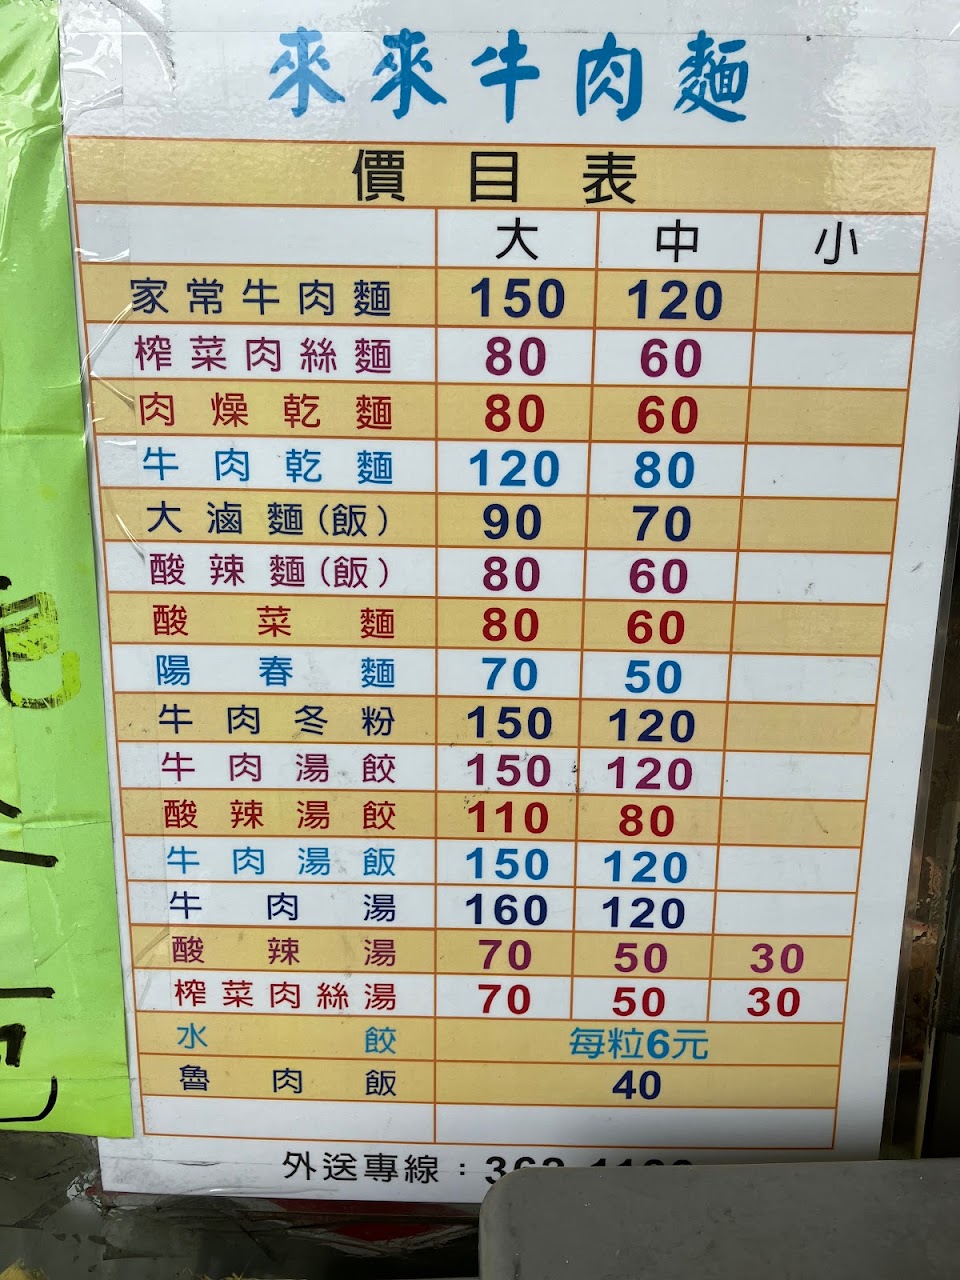 來來牛肉麵
價目表
大 中 小
家常牛肉麵 150 120
榨菜肉絲麵 80 60
肉燥乾麵 80 60
牛肉乾麵 120 80
大滷麵(飯) 90 70
酸辣麵(飯) 80 60
酸菜麵 80 60
陽春麵 70 50
牛肉冬粉 150 120
牛肉湯餃 150 120
酸辣湯餃 110 80
牛肉湯飯 150 120
牛肉湯 160 120
酸辣湯 70 50 30
榨菜肉絲湯 70 50 30
水餃 每粒6元
魯肉飯 40
外送專線: